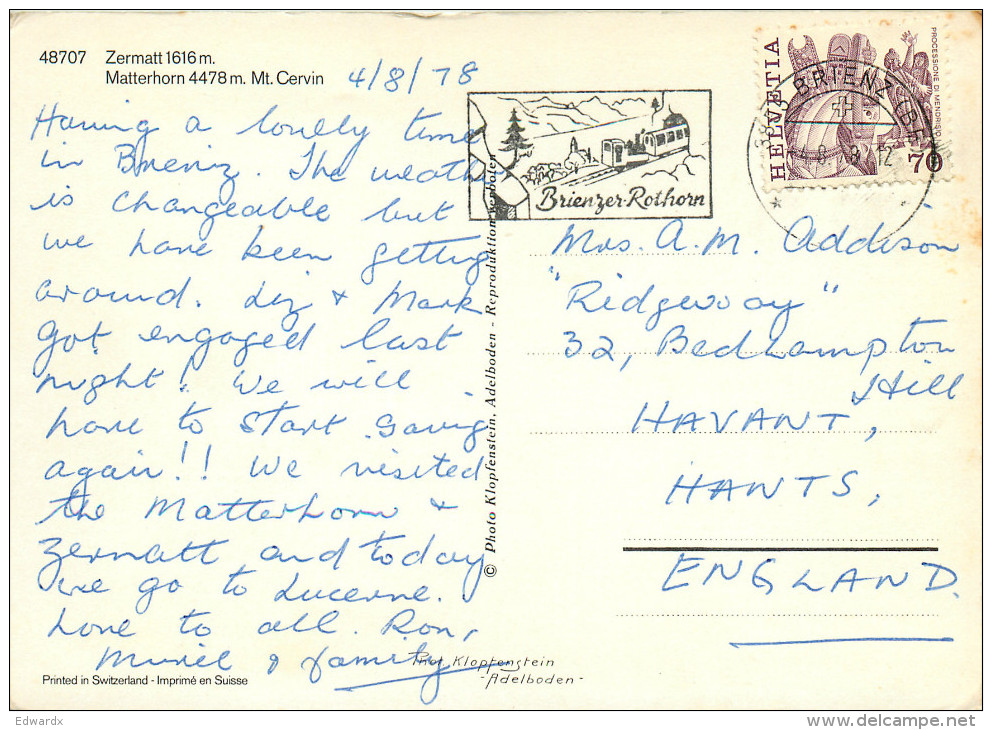 48707 Zermatt 1616 m.
Matterhorn 4478 m. Mt. Cervin
4/8/78
Having a lovely time
in Brienz. The weath
is changeable but
we have been getting
around. Liz & Mark
got engaged last
night! We will
have to start saving
again!! We visited
the Matterhorn &
Zermatt and today
we go to Lucerne.
Love to all. Ron,
Muriel & family
Printed in Switzerland - Imprimé en Suisse
© Photo Klopfenstein, Adelboden - Reproduktion verboten
Phot Klopfenstein
- Adelboden -
Brienzer-Rothorn
BRIENZ (BE)
-4.8.78.12
HELVETIA
PROCESSIONE DI MENDRISIO
70
Mrs. A. M. Addison
"Ridgeway"
32, Bedhampton
Hill
HAVANT,
HANTS,
ENGLAND.
Edwardx
delcampe.net